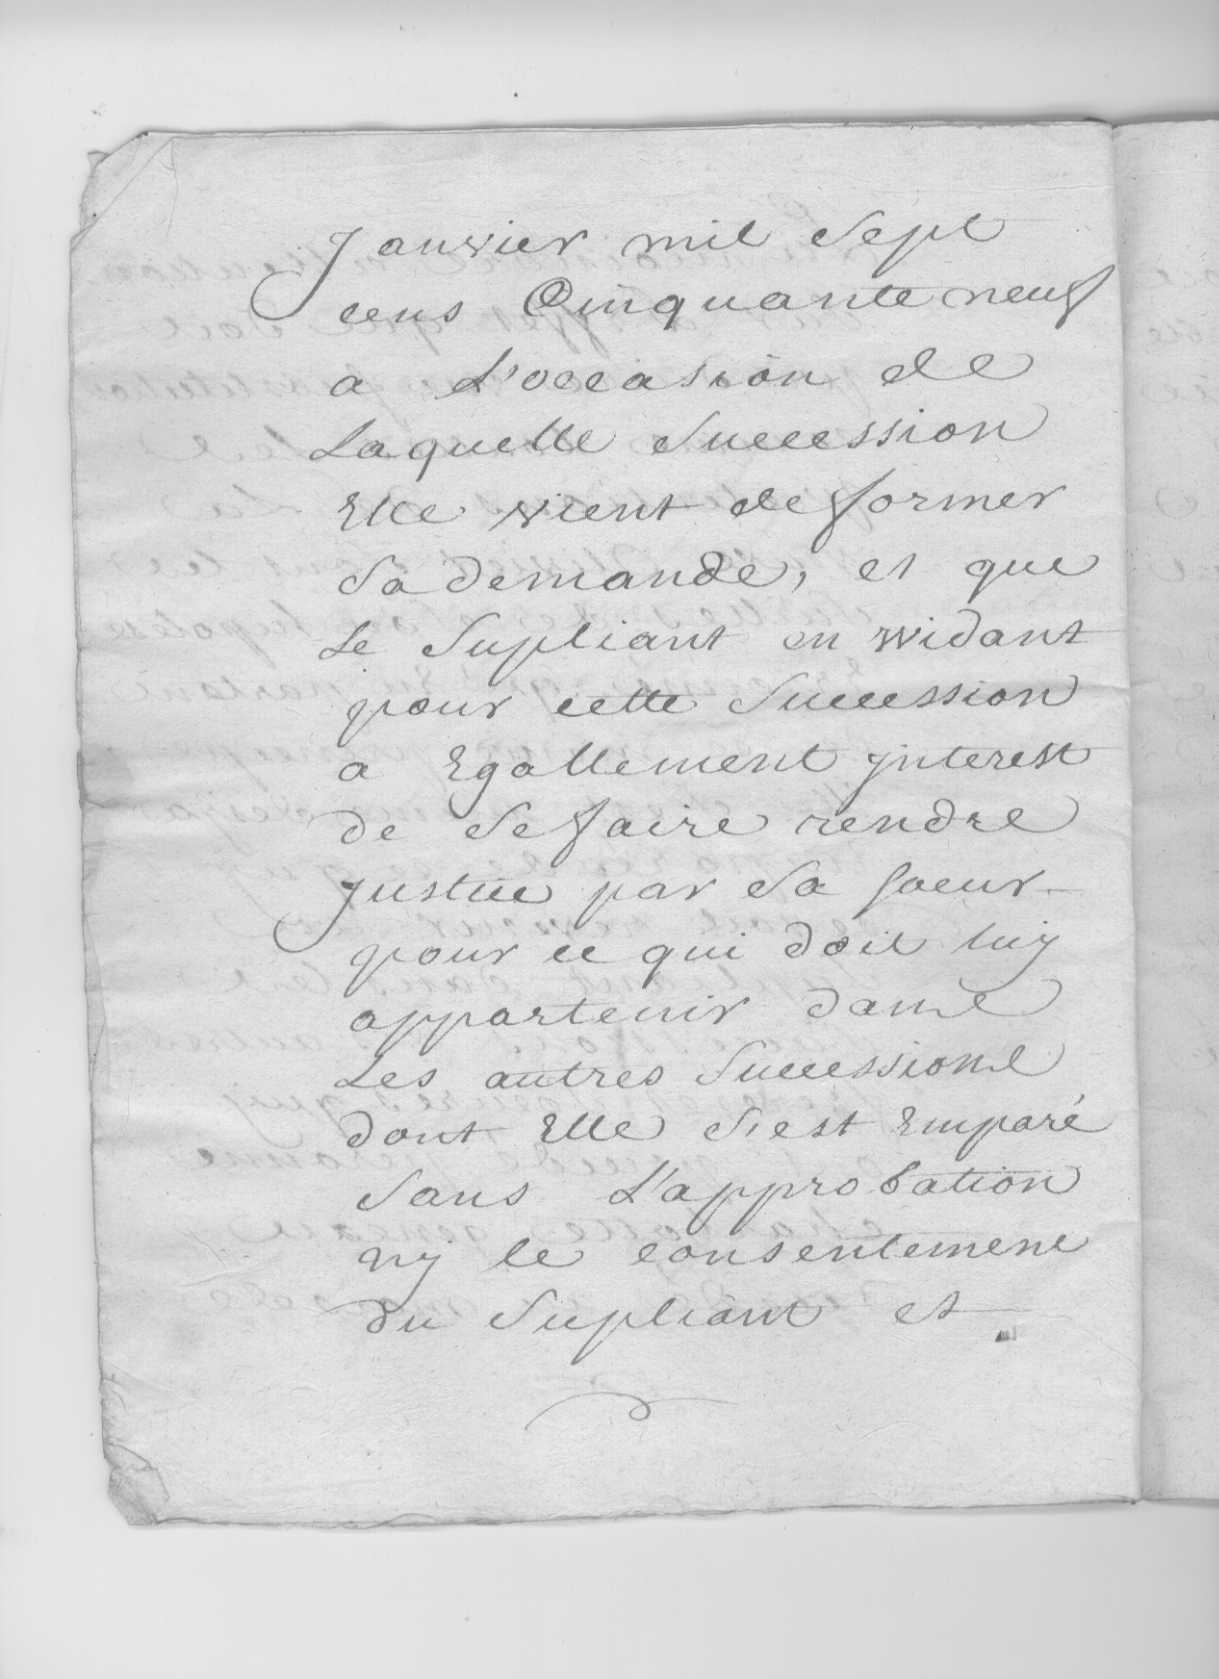 Janvier mil Sept
cens Cinquante neuf
a L'occasion de
Laquelle Succession
Elle vient de former
Sa demande, et que
Le Supliant en vuidant
pour cette Succession
a Egallement jnterest
de Se faire rendre
justice par Sa soeur
pour ce qui doit luy
appartenir dans
Les autres Successions
dont Elle S'est Emparé
Sans L'approbation
ny le consentement
du Supliant et